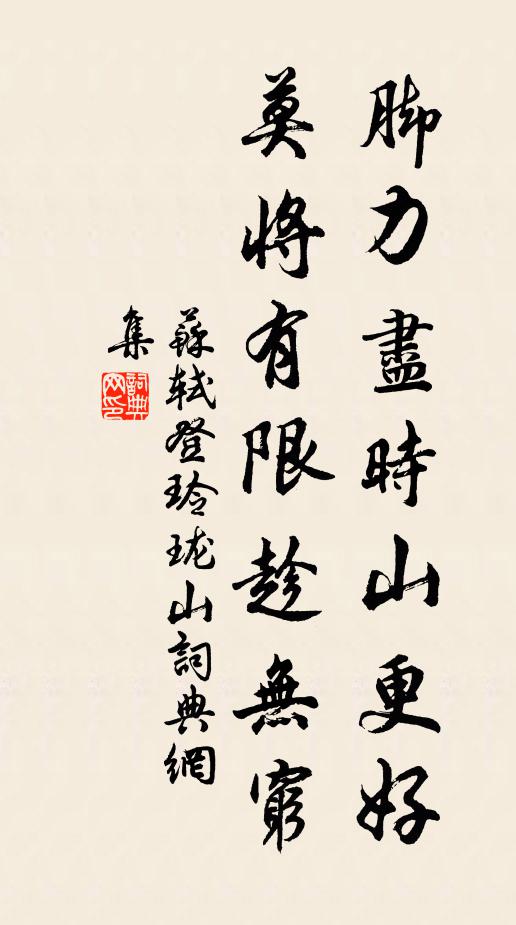 脚力盡時山更好
莫將有限趁無窮
蘇軾登玲瓏山詞典網
集
詞典网印